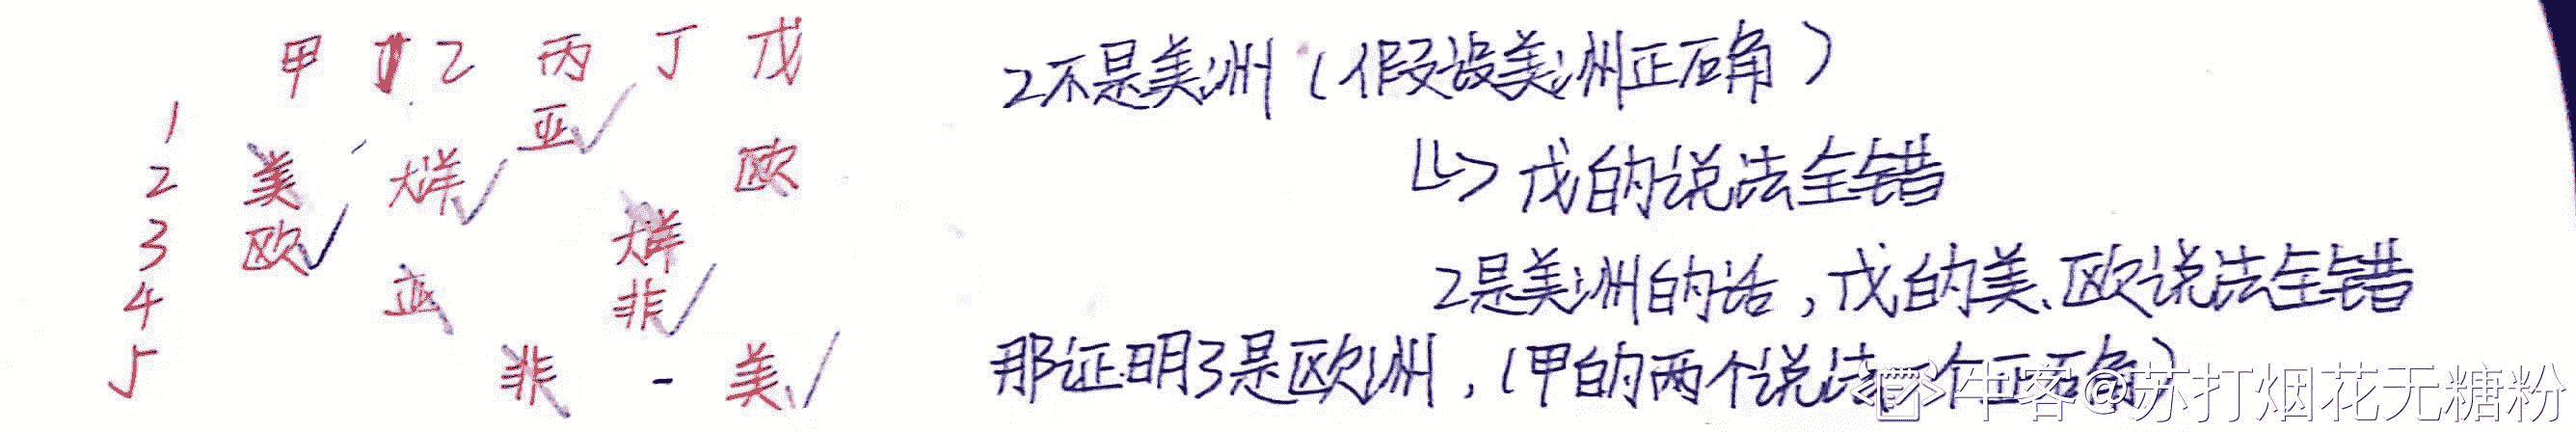 甲 乙 丙 丁 戊
1 亚
2 美 大洋 欧
3 欧 大洋
4 亚 非
5 非 - 美
2不是美洲(假设美洲正确)
↳> 戊的说法全错
2是美洲的话,戊的美、欧说法全错
那证明3是欧洲,(甲的两个说法一个正确)
牛客@苏打烟花无糖粉